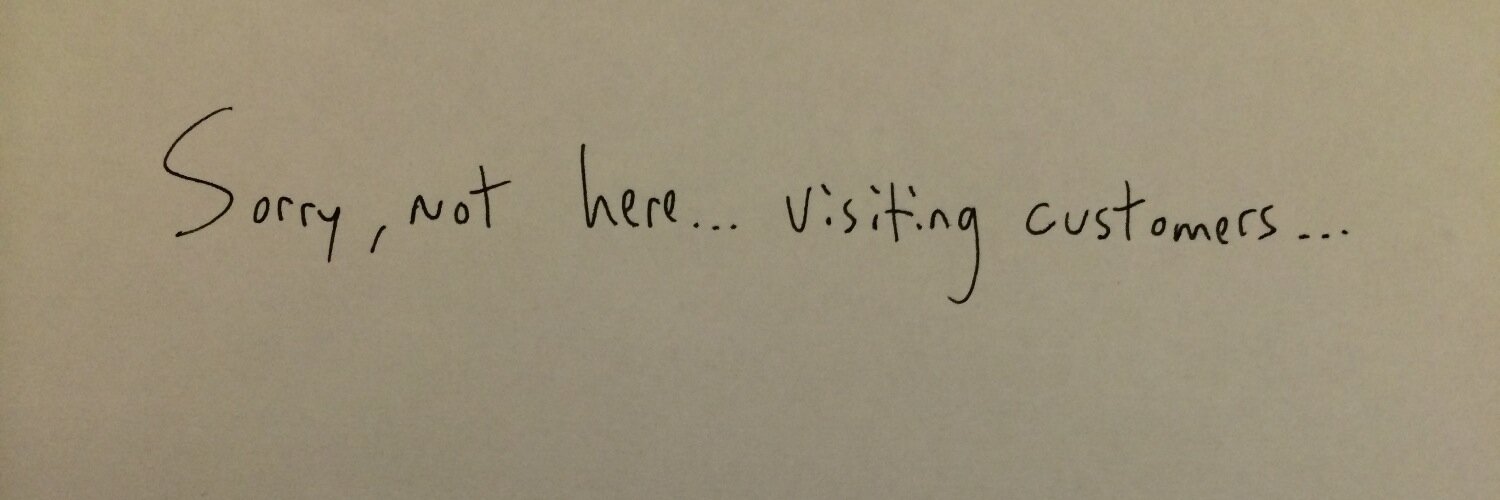 Sorry, not here... visiting customers...